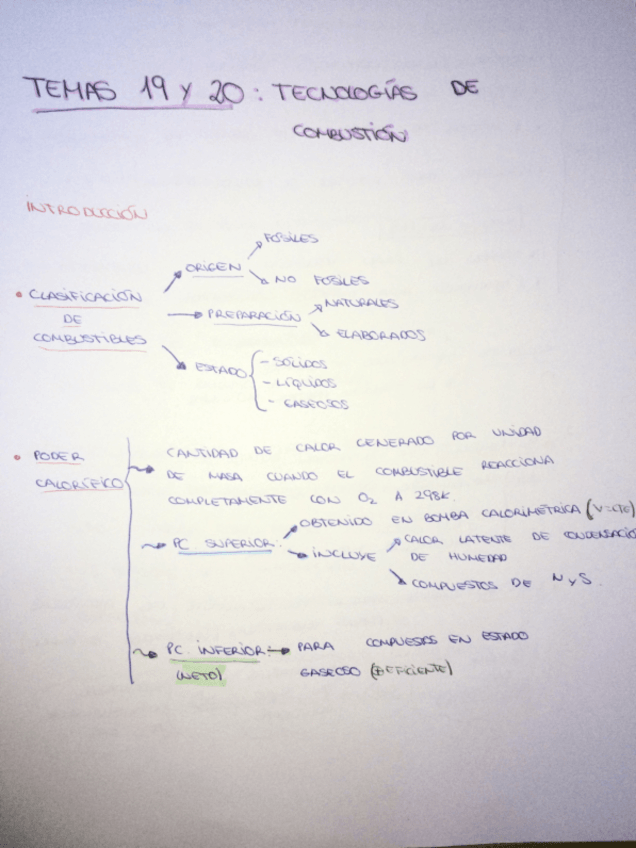 TEMAS 19 Y 20: TECNOLOGÍAS DE
COMBUSTIÓN
INTRODUCCIÓN
• CLASIFICACIÓN
DE
COMBUSTIBLES
ORIGEN
FÓSILES
NO FÓSILES
PREPARACIÓN
NATURALES
ELABORADOS
ESTADO
- SÓLIDOS
- LÍQUIDOS
- GASEOSOS
• PODER
CALORÍFICO
CANTIDAD DE CALOR GENERADO POR UNIDAD
DE MASA CUANDO EL COMBUSTIBLE REACCIONA
COMPLETAMENTE CON O2 A 298K.
PC SUPERIOR:
OBTENIDO EN BOMBA CALORIMÉTRICA (V=CTE)
INCLUYE
CALOR LATENTE DE CONDENSACIÓ
DE HUMEDAD
COMPUESTOS DE N y S.
PC. INFERIOR:
(NETO)
PARA COMPUESTOS EN ESTADO
GASEOSO